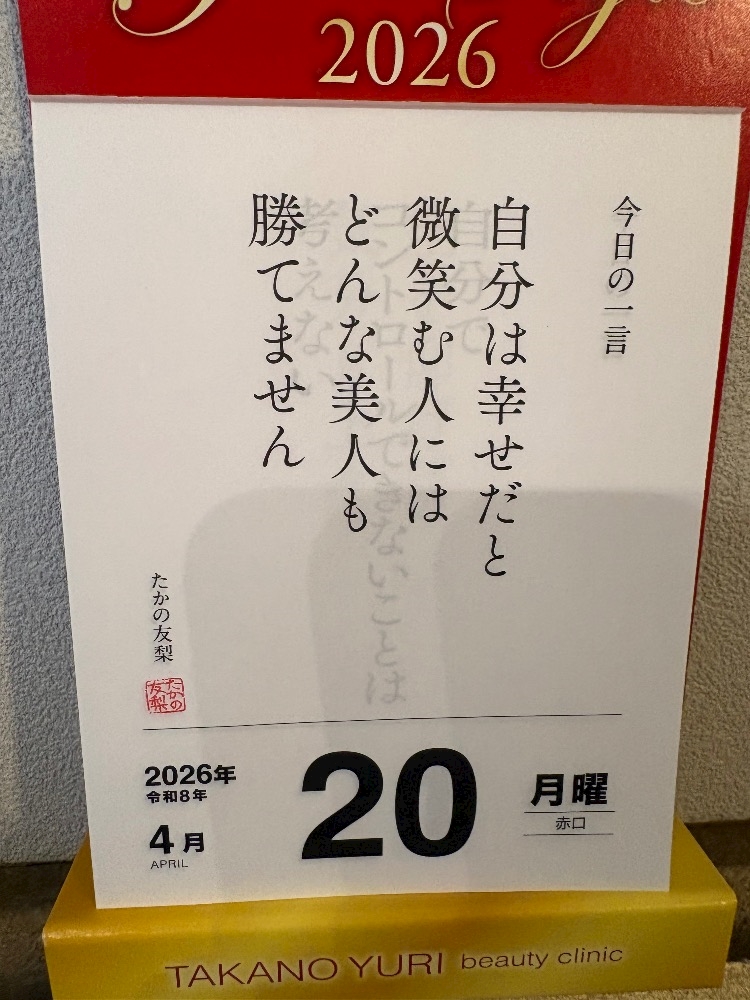 2026
今日の一言
自分は幸せだと
微笑む人には
どんな美人も
勝てません
たかの友梨
たかの
友梨
2026年
令和8年
4月
APRIL
20
月曜
赤口
TAKANO YURI beauty clinic
自分で
コントロールできないことは
考えない